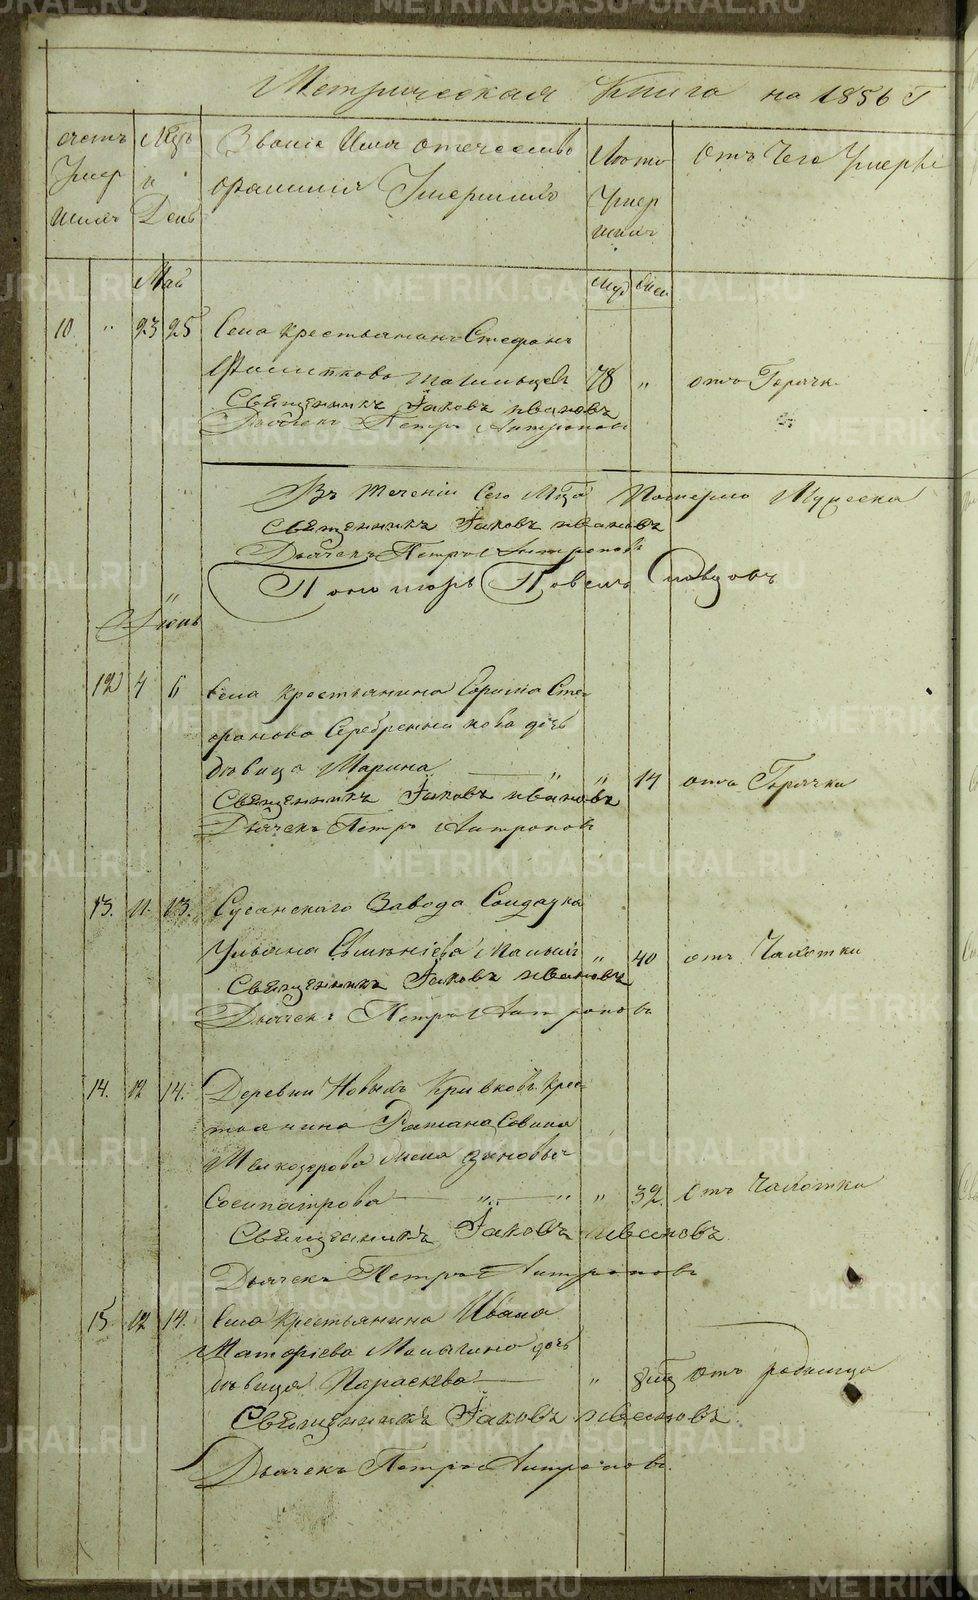 METRIKI.GASO-URAL.RU
Метрическая Книга на 1856 Г
счетъ Умер шихъ
Мѣсяцъ и День
Званіе Имя отечество фамилія Умершихъ
Лѣто Умер шихъ
Отъ Чего Умерле
Май
Муж Жен
10 " 23 25 Села крестьянинъ Стефанъ
78 " отъ Горячк
Священникъ Іаковъ Ивановъ
Дьячекъ Петръ Антроповъ
Въ теченіи Сего Мца Померло Мужеска
Священникъ Іаковъ Ивановъ
Дьячекъ Петръ Антроповъ
Пономарь Павелъ Словцовъ
Іюнь
12 4 6 Села крестьянина Сте-
фанова Серебренникова дочь
дѣвица Марина " 14 отъ Горячки
Священникъ Іаковъ Ивановъ
Дьячекъ Петръ Антроповъ
13. 11. 13. Сусанскаго Завода Солдатка
Ульяна " 40 отъ Чахотки
Священникъ Іаковъ Ивановъ
Дьячекъ Петръ Антроповъ
14. 12 14. Деревни Новыхъ Кривковъ крес-
тьянина Романа Савина
Мелкозерова жена Зиновья
Сосипатрова " " " 32 Отъ Чахотки
Священникъ Іаковъ Ивановъ
Дьячекъ Петръ Антроповъ
15 12 14. Села Крестьянина Ивана
Матфіева дочь
дѣвица Параскева " Отъ родимца
Священникъ Іаковъ Ивановъ
Дьячекъ Петръ Антроповъ.